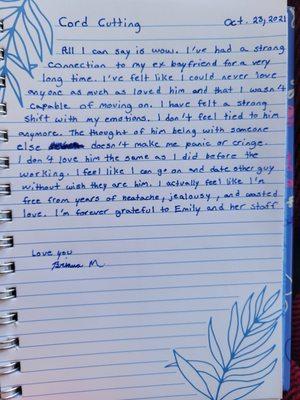 Cord Cutting Oct. 23, 2021
All I can say is wow. I've had a strong
connection to my ex boyfriend for a very
long time. I've felt like I could never love
anyone as much as loved him and that I wasn't
capable of moving on. I have felt a strong
shift with my emotions. I don't feel tied to him
anymore. The thought of him being with someone
else doesn't make me panic or cringe.
I don't love him the same as I did before the
working. I feel like I can go on and date other guy
without wish they are him. I actually feel like I'm
free from years of heatache, jealousy, and wasted
love. I'm forever grateful to Emily and her staff
Love you
Briana M.